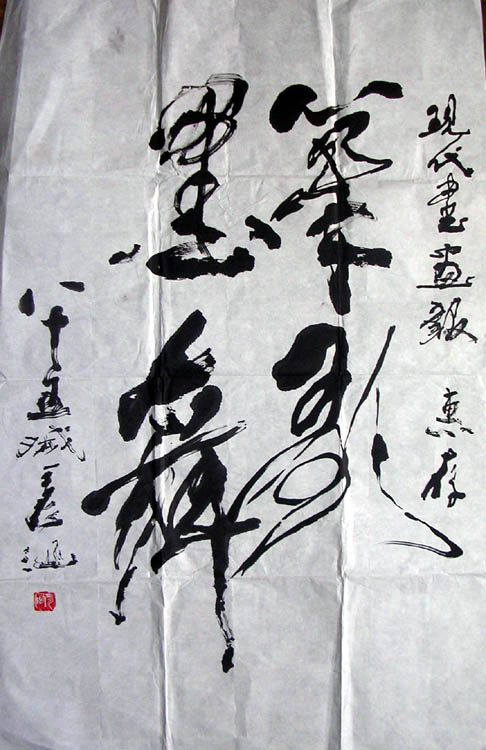 現代書畫報 惠存
筆歌
墨舞
八十五歲